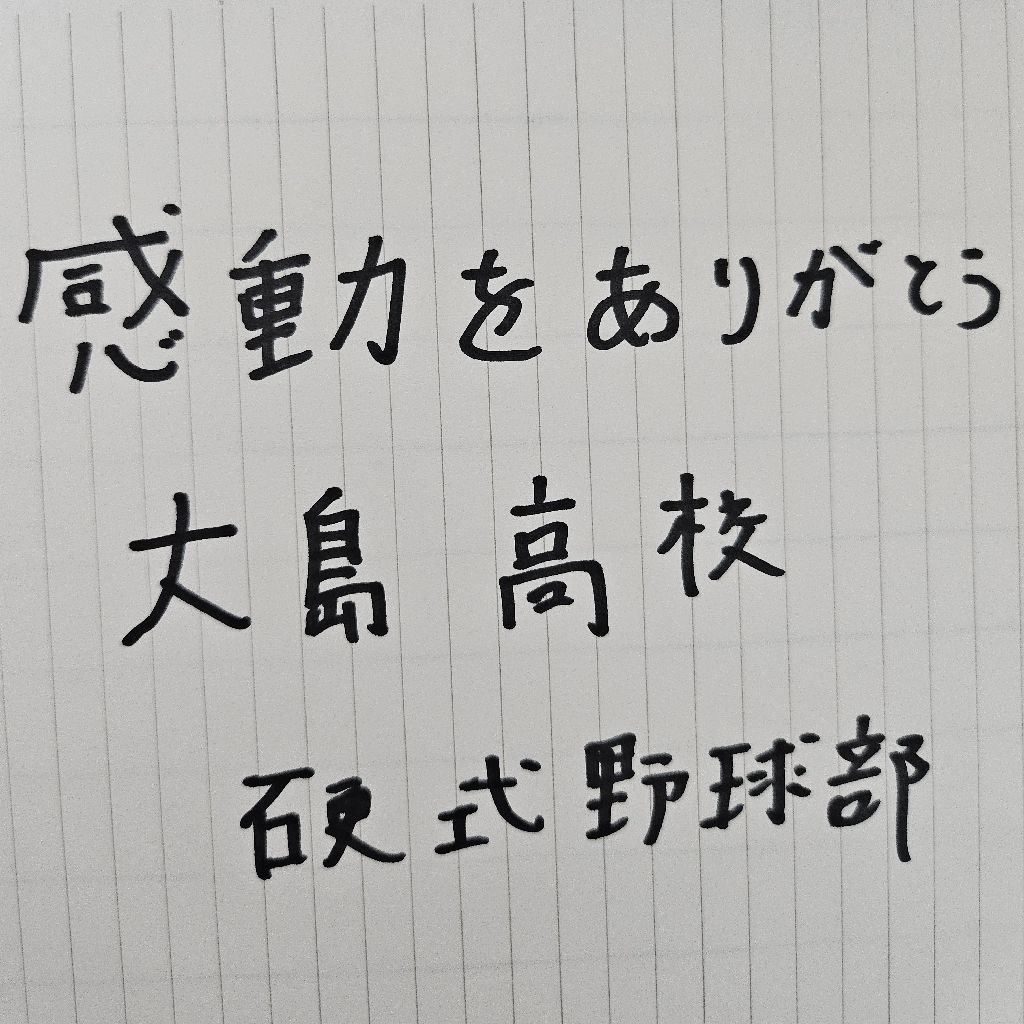 感動をありがとう
大島高校
硬式野球部